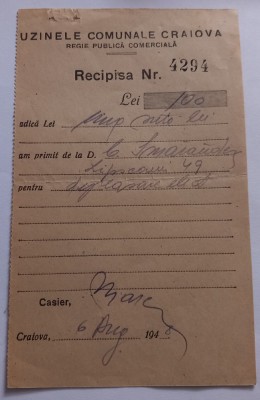 UZINELE COMUNALE CRAIOVA
REGIE PUBLICĂ COMERCIALĂ
Recipisa Nr. 4294
Lei 100
adică Lei una sută lei
am primit de la D. C. Smarandescu
Lipscani 49
pentru
Casier,
Craiova, 6 Aug 1948